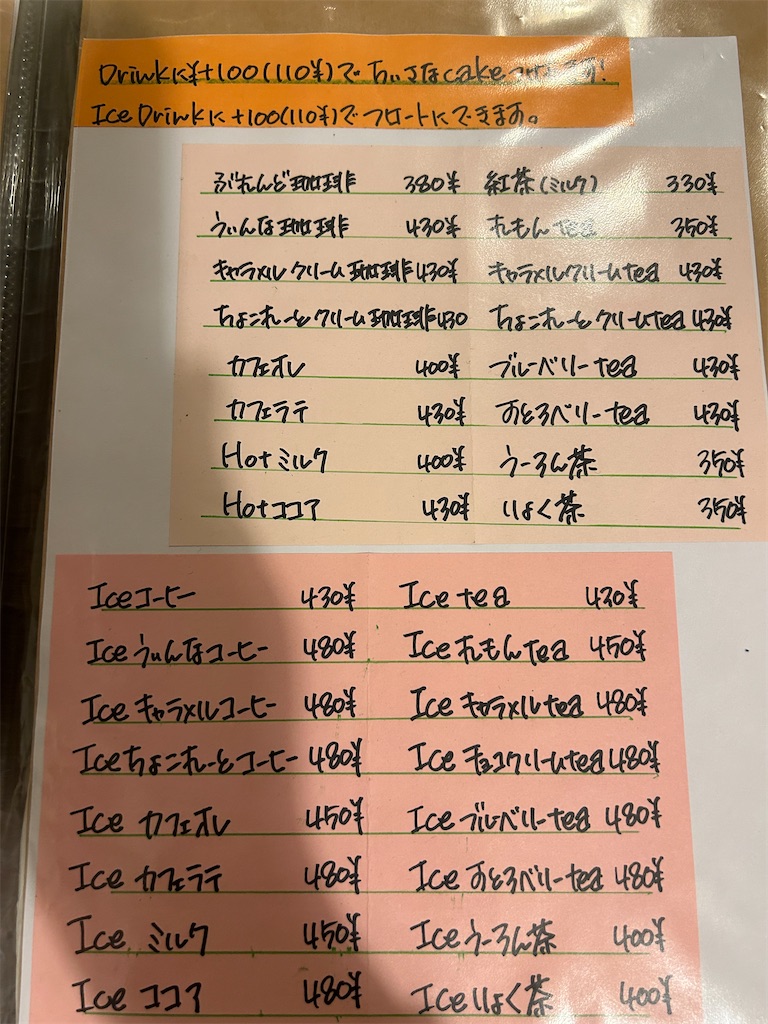 Drinkに¥+100(110¥)で ちいさなcakeつけ ます!
Ice Drinkに+100(110¥)でフロートにできます。
ぶれんど珈琲 380¥ 紅茶(ミルク) 330¥
うぃんな珈琲 430¥ れもんtea 350¥
キャラメルクリーム珈琲 430¥ キャラメルクリームtea 430¥
ちょこれーとクリーム珈琲 430 ちょこれーとクリームtea 430¥
カフェオレ 400¥ ブルーベリーtea 430¥
カフェラテ 430¥ すとろベリーtea 430¥
Hotミルク 400¥ うーろん茶 350¥
Hotココア 430¥ りょく茶 350¥
Iceコーヒー 430¥ Ice tea 430¥
Ice うぃんなコーヒー 480¥ Ice れもんtea 450¥
Ice キャラメルコーヒー 480¥ Ice キャラメルtea 480¥
Ice ちょこれーとコーヒー 480¥ Ice チョコクリームtea 480¥
Ice カフェオレ 450¥ Ice ブルーベリーtea 480¥
Ice カフェラテ 480¥ Ice すとろベリーtea 480¥
Ice ミルク 450¥ Ice うーろん茶 400¥
Ice ココア 480¥ Ice りょく茶 400¥